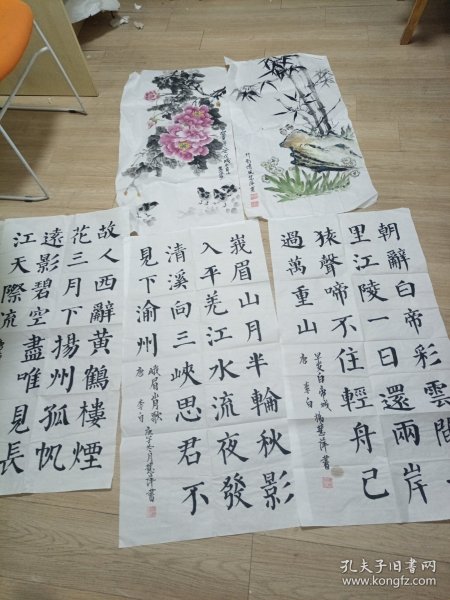 朝辭白帝彩雲間
里江陵一日還兩岸
猿聲啼不住輕舟已
過萬重山
早发白帝城
唐 李白 楊慧萍書
峩眉山月半輪秋影
入平羌江水流夜發
清溪向三峽思君不
見下渝州
峨眉山月歌
唐 李白 庚子冬月慧萍書
故人西辭黃鶴樓煙
花三月下揚州孤帆
遠影碧空盡唯見長
江天際流
孔夫子旧书网
www.kongfz.com